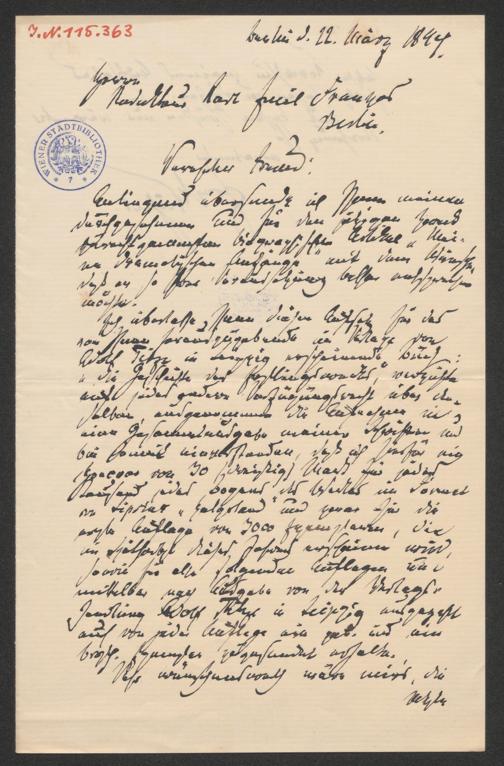 J.N. 115.363
Berlin d. 22. März 1894.
Herrn
Redakteur Karl Emil Franzos
Berlin.
WIENER STADTBIBLIOTHEK
* 7 *
Verehrter Freund!
Anliegend übersende ich Ihnen meinen
durchgesehenen und für den jetzigen Zweck
biographischen Artikel „Mei-
ne dramatischen Anfänge" mit dem Wunsche,
daß er so Ihrer Voraussetzung besser entsprechen
möchte.
Ich überlasse Ihnen diesen Aufsatz für das
von Ihnen herauszugebende im Verlage von
Adolf Titze in Leipzig erscheinende Buch:
„Die Geschichte des Erstlingswerks", verzichte
auf jedes andere Verfügungsrecht über den-
selben, ausgenommen die Aufnahme in
eine Gesammtausgabe meiner Schriften und
bin damit einverstanden, daß ich hierfür ein
Honorar von 30 (dreißig) Mark für jedes
Tausend jedes Bogens des Werkes im Format
und zwar für die
erste Auflage von 3000 Exemplaren, die
im Spätherbst dieses Jahres erscheinen wird,
sowie für alle folgende Auflagen un-
mittelbar nach Ausgabe von der Verlags-
handlung Adolf Titze in Leipzig ausgezahlt
auch von jeder Auflage ein geb. und ein
brosch. Exemplar zugesendet erhalte.
Sehr wünschenswerth wäre mir's, die
letzte